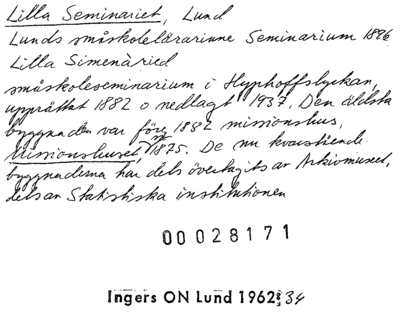 Lilla Seminariet, Lund
Lunds småskolelärarinne Seminarium 1886
Lilla Simenàried
småskoleseminarium i Hyphoffslyckan,
upprättat 1882 o nedlagt 1937. Den äldsta
byggnaden var före 1882 missionshus,
Missionshuset, 1875. De nu kvarstående
byggnaderna har dels övertagits av Arkivmuseet,
dels av Statistiska institutionen
00028171
Ingers ON Lund 1962 s 34